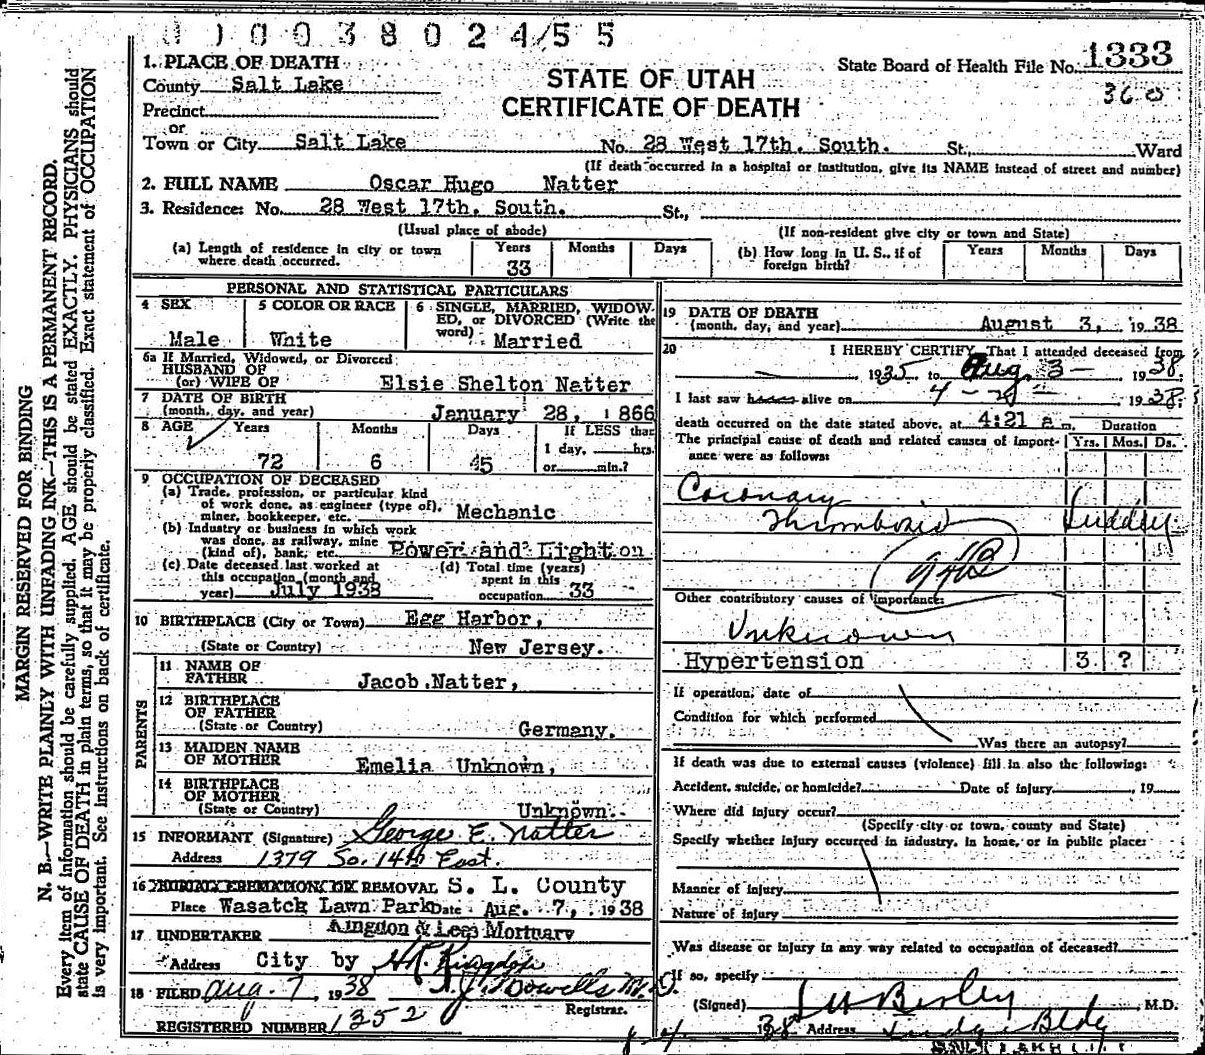 1003802455
1. PLACE OF DEATH
County Salt Lake
Precinct
or
Town or City Salt Lake
STATE OF UTAH
CERTIFICATE OF DEATH
State Board of Health File No. 1333
360
No. 28 West 17th. South. St., Ward
(If death occurred in a hospital or institution, give its NAME instead of street and number)
2. FULL NAME Oscar Hugo Natter
3. Residence: No. 28 West 17th. South. St.,
(Usual place of abode)
(If non-resident give city or town and State)
(a) Length of residence in city or town where death occurred. Years 33 Months Days
(b) How long in U. S., if of foreign birth? Years Months Days
MARGIN RESERVED FOR BINDING
N. B.—WRITE PLAINLY WITH UNFADING INK—THIS IS A PERMANENT RECORD.
Every item of information should be carefully supplied. AGE should be stated EXACTLY. PHYSICIANS should
state CAUSE OF DEATH in plain terms, so that it may be properly classified. Exact statement of OCCUPATION
is very important. See instructions on back of certificate.
PERSONAL AND STATISTICAL PARTICULARS
4 SEX Male
5 COLOR OR RACE White
6 SINGLE, MARRIED, WIDOWED, or DIVORCED (Write the word) Married
6a If Married, Widowed, or Divorced
HUSBAND OF
(or) WIFE OF Elsie Shelton Natter
7 DATE OF BIRTH
(month, day, and year) January 28, 1866
8 AGE Years 72 Months 6 Days If LESS than 1 day, hrs. or min.?
9 OCCUPATION OF DECEASED
(a) Trade, profession, or particular kind
of work done, as engineer (type of),
miner, bookkeeper, etc. Mechanic
(b) Industry or business in which work
was done, as railway, mine
(kind of), bank, etc. Power and Light on
(c) Date deceased last worked at
this occupation (month and
year) July 1938
(d) Total time (years)
spent in this
occupation 33
10 BIRTHPLACE (City or Town) Egg Harbor,
(State or Country) New Jersey.
PARENTS
11 NAME OF
FATHER Jacob Natter,
12 BIRTHPLACE
OF FATHER
(State or Country) Germany.
13 MAIDEN NAME
OF MOTHER Emelia Unknown,
14 BIRTHPLACE
OF MOTHER
(State or Country) Unknown.
15 INFORMANT (Signature) George E. Natter
Address 1379 So. 14th East.
16 BURIAL, CREMATION, OR REMOVAL S. L. County
Place Wasatch Lawn Park Date Aug. 7, 1938
17 UNDERTAKER Kingdon & Lees Mortuary
Address City by Kingdon
18 FILED Aug. 7, 1938 M.D.
Registrar.
REGISTERED NUMBER 1352
19 DATE OF DEATH
(month, day, and year) August 3, 1938
20 I HEREBY CERTIFY, That I attended deceased from
1935 to Aug. 3 — 1938.
I last saw alive on 1938,
death occurred on the date stated above, at 4:21 a m.
Duration
The principal cause of death and related causes of importance were as follows: Yrs. Mos. Ds.
Coronary
Thrombosis
Other contributory causes of importance:
Unknown
Hypertension 3 ?
If operation, date of
Condition for which performed
Was there an autopsy?
If death was due to external causes (violence) fill in also the following:
Accident, suicide, or homicide? Date of injury , 19
Where did injury occur?
(Specify city or town, county and State)
Specify whether injury occurred in industry, in home, or in public place:
Manner of injury
Nature of injury
Was disease or injury in any way related to occupation of deceased?
If so, specify
(Signed) M.D.
38 Address Bldg